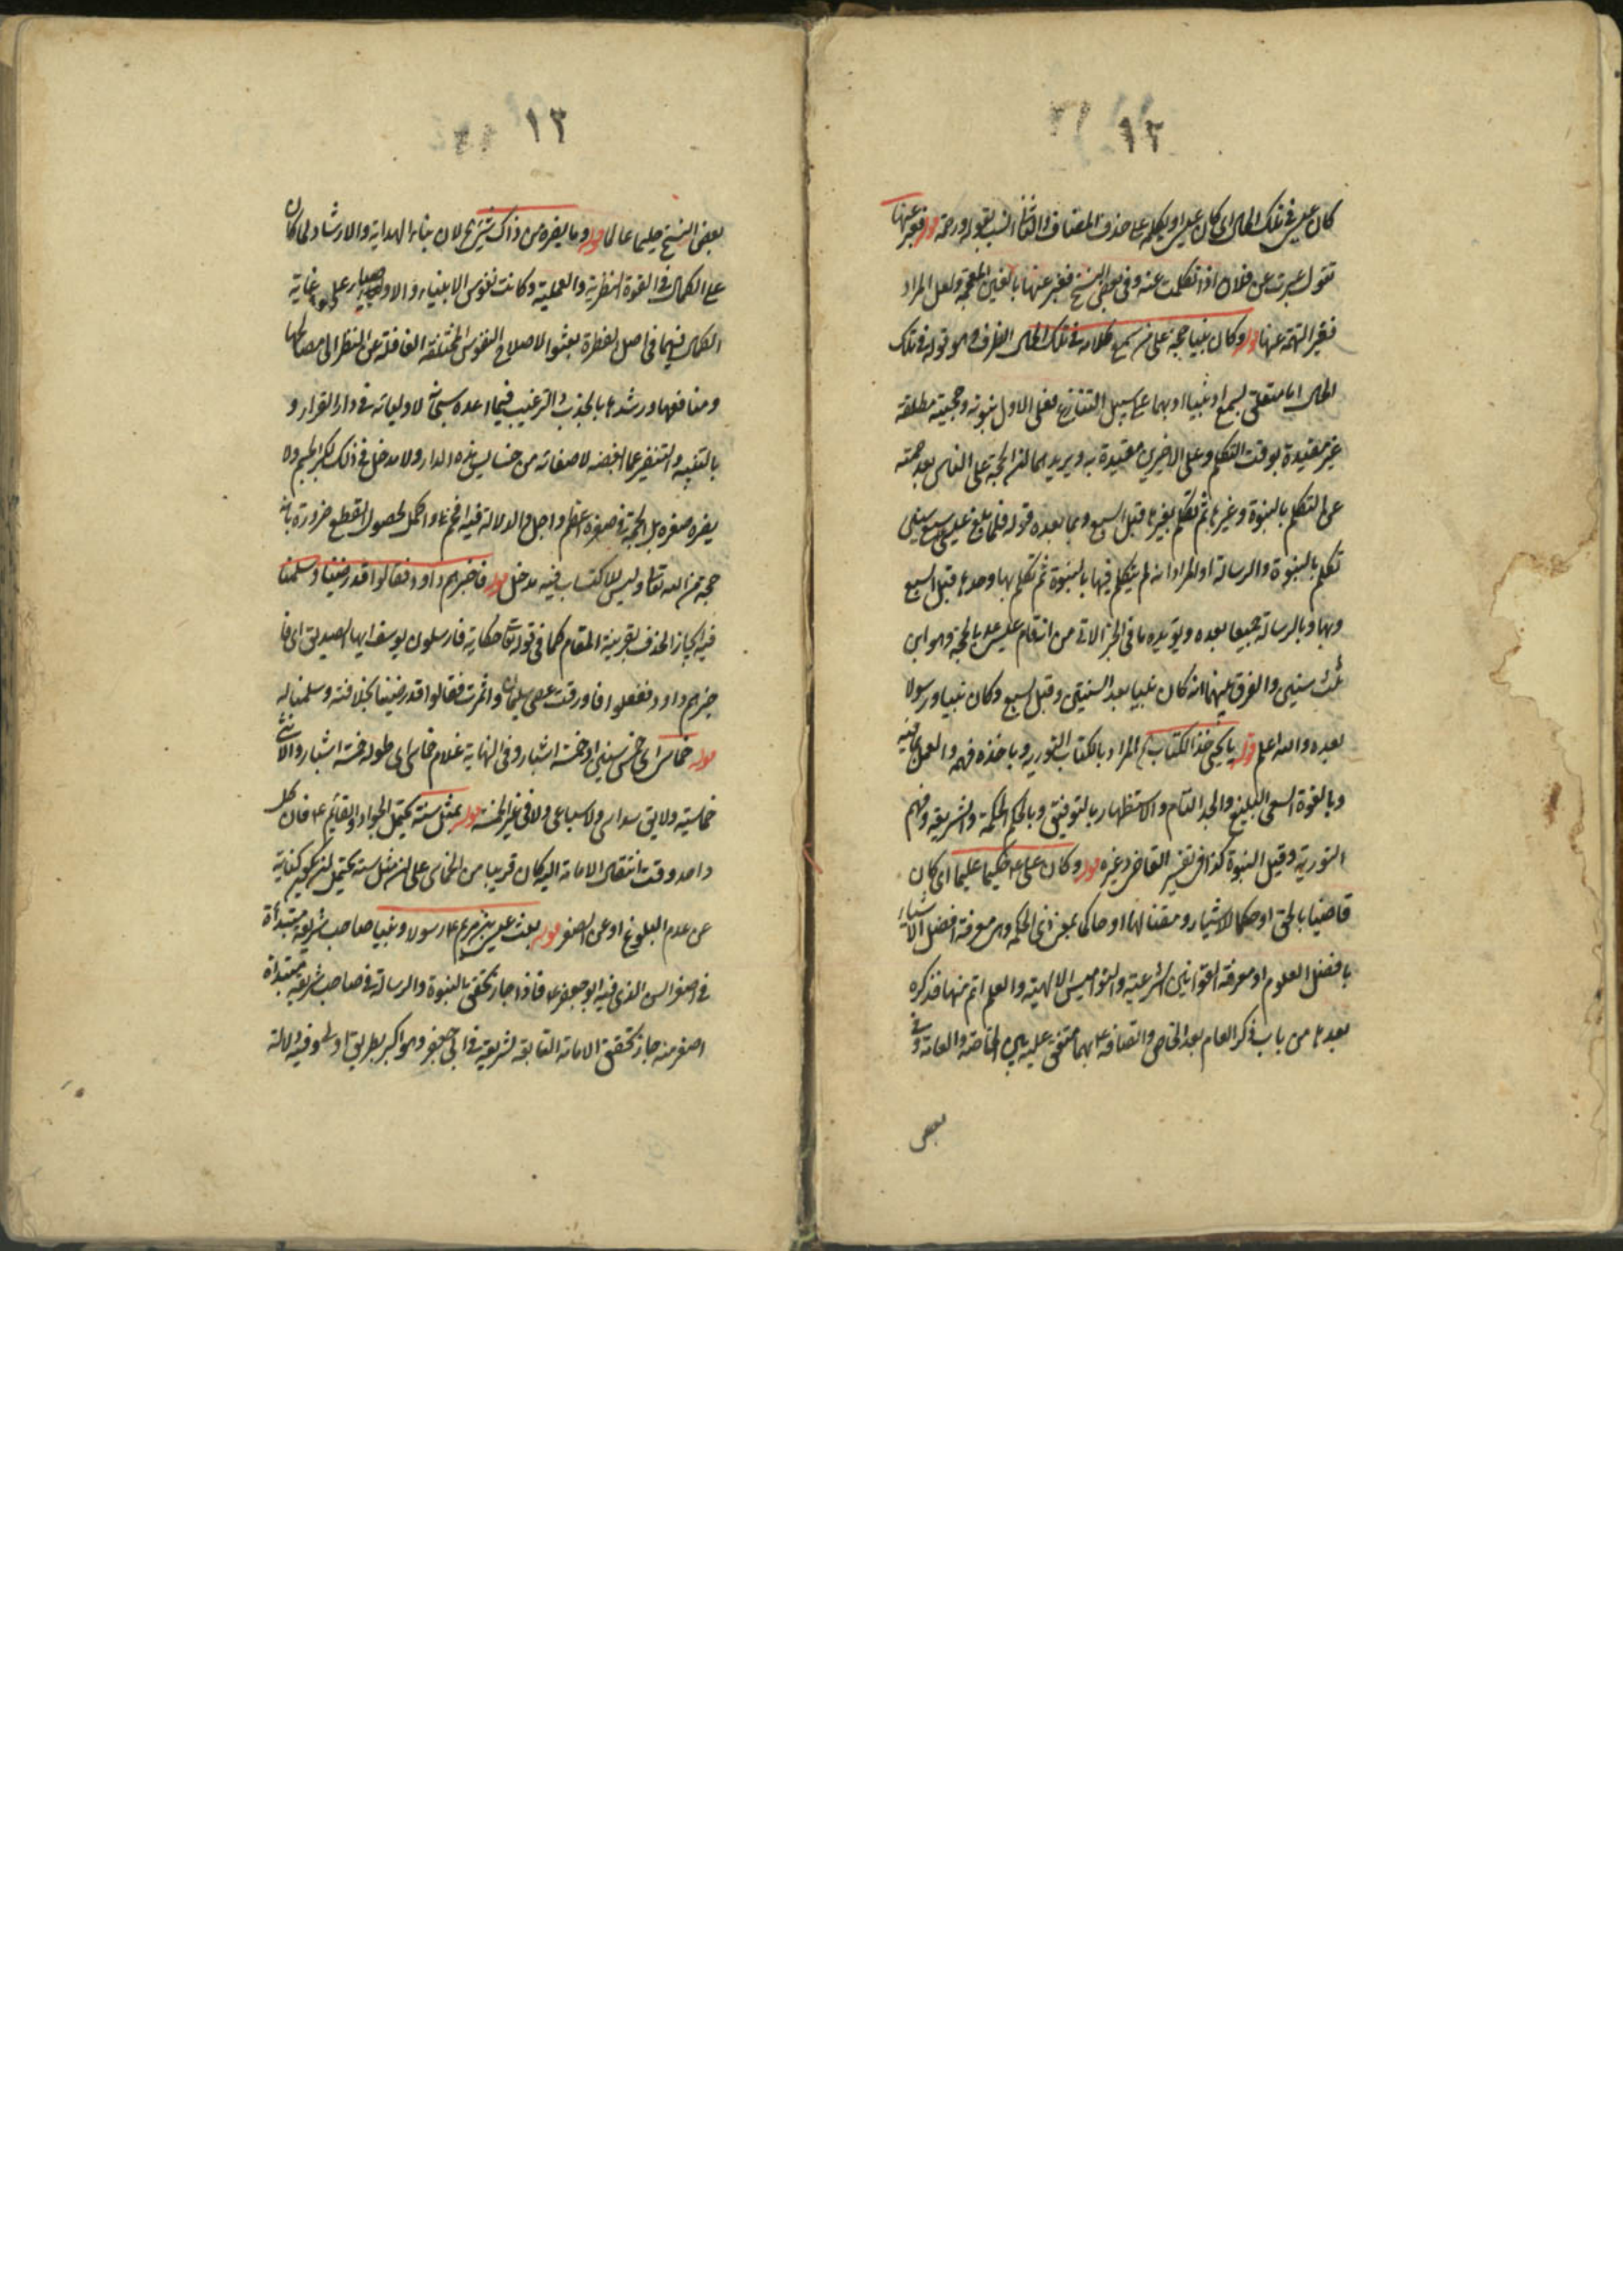 ١٢
كان عيسى في تلك الحال اى كان عيسى او يكلم على حذف المضاف والتفا النسب بقوله ورحمة قوله فعبر عنها
تقول عبرت عن فلان اذا تكلمت عنه وفى بعض النسخ فغبر عنها بالغين المعجمة ولعل المراد
فغبر التهمة عنها قوله وكان نبيا حجة على من سمع كلامه في تلك الحال الظرف وهو قوله في تلك
الحال اما متعلق بسمع او نبيا او بهما على سبيل التنازع فعلى الاول نبوته وحجيته مطلقة
غير مقيدة بوقت التكلم وعلى الاخيرين مقيدة به ويريد بهما انه الحجة على الناس بعد صمته
عن التكلم بالنبوة وغيرها ثم تكلم بغيرها قبل السبع وبما بعده قوله فلما بلغ عيسى سبع سنين
تكلم بالنبوة والرسالة او المراد انه لم يتكلم فيها بالنبوة ثم تكلم بها وحدها قبل السبع
وبها وبالرسالة جميعا بعده ويؤيده ما في الخبر الاتى من ان قام عيسى بالحجة وهو ابن
ثلث سنين والفرق بينهما انه كان نبيا بعد السنتين وقبل السبع وكان نبيا ورسولا
بعده والله اعلم قوله يا يحيى خذ الكتاب المراد بالكتاب التورية وباخذه فهمه والعمل بما فيه
وبالقوة السعى البليغ والجد التام والاستظهار بالتوفيق وبالحكم الحكمة والشريعة وفهم
التورية وقيل النبوة كذا في تفسير القاضى وغيره قوله وكان على ع حكيما عليما اى كان
قاضيا بالحق او محكما للاشياء ومتقنا لها او حاكما بمعنى ذى الحكمة وهى معرفة افضل الاشياء
بافضل العلوم او معرفة القوانين الشرعية والنواميس الالهية والعلم اتم منها فذكره
بعدها من باب ذكر العام بعد الخاص واتصافه ع بهما متفق عليه بين الخاصة والعامة وفى
بعض
١٣
بعض النسخ حليما عالما قوله وما يضره من ذاك شئ لان بناء الهداية والارشاد لما كان
على الكمال في القوة النظرية والعملية وكانت نفوس الانبياء والاوصياء على غاية
الكمال فيهما في اصل الفطرة بعثوا لاصلاح النفوس المختلفة الغافلة عن النظر الى مصالحها
ومنافعها ورشدها بالجذب والترغيب فيما اعده سبحانه لاوليائه في دار القرار و
بالتنبيه والتنفير عما ابغضه لاصفيائه من خسايس هذه الدار ولا مدخل في ذلك لكبر الجسم ولا
يضره صغره بل الحجة في صغره اعظم واجل والدلالة فيه افخم واكمل لحصول القطع ضرورة بانه
حجة من الله تعالى وليس للاكتساب فيه مدخل قوله فاخبرهم داود فقالوا قد رضينا وسلمنا
فيه ايجاز الحذف بقرينة المقام كما في قوله تعالى حكاية فارسلون يوسف ايها الصديق اى فا
خبرهم داود ففعلوا فاورقت عصى سليمان واثمرت فقالوا قد رضينا بخلافته وسلمنا له
قوله خماسى اى خمس سنين او خمسة اشبار وفى النهاية غلام خماسى اى طوله خمسة اشبار والانثى
خماسية ولا يق سداسى ولا سباعى ولا في غير الخمسة قوله بمثل سنه يحتمل الجواد والقائم ع فان كل
واحد وقت انتقال الامامة اليه كان قريبا من الخماسى على ان مثل سنه يحتمل ان يكون كناية
عن عدم البلوغ او عن الصغر قوله بعث عيسى بن مريم ع رسولا ونبيا صاحب شريعة مبتدأة
في اصغر السن الذى فيه ابو جعفر ع فاذا جاز تحقق النبوة والرسالة في صاحب شريعة مبتدأة
اصغر منه جاز تحقق الامامة التابعة لشريعة في ابى جعفر وهو اكبر بطريق اولى وفيه دلالة